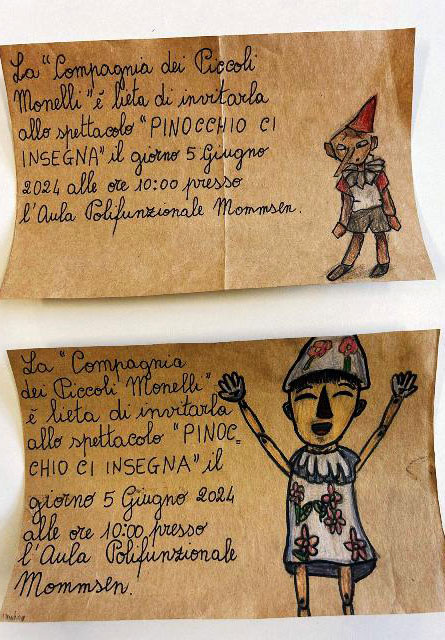 La "Compagnia dei Piccoli
Monelli" è lieta di invitarla
allo spettacolo "PINOCCHIO CI
INSEGNA" il giorno 5 Giugno
2024 alle ore 10:00 presso
l'Aula Polifunzionale Mommsen.
La "Compagnia
dei Piccoli Monelli"
è lieta di invitarla
allo spettacolo "PINOC=
CHIO CI INSEGNA" il
giorno 5 Giugno 2024
alle ore 10:00 presso
l'Aula Polifunzionale
Mommsen.